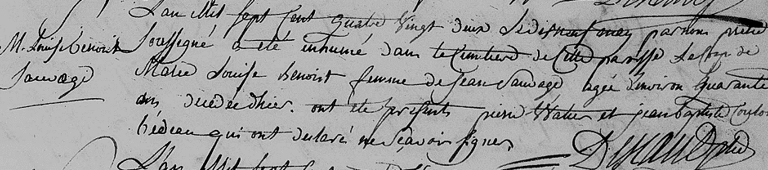 L'an Mil Sept Cent quatre Vingt deux Le dix neuf may par moy pretre
M. Louise Benoist
Sauvage
soussigné a été inhumé dans le Cimetiere de Cette paroisse Le Corps de
Marie Louise Benoist femme de Jean Sauvage agée d'environ quarante
ans decedée d'hier. ont été presents pierre et jean Baptiste
bedeau qui ont declaré ne sçavoir signer
L'an Mil Sept